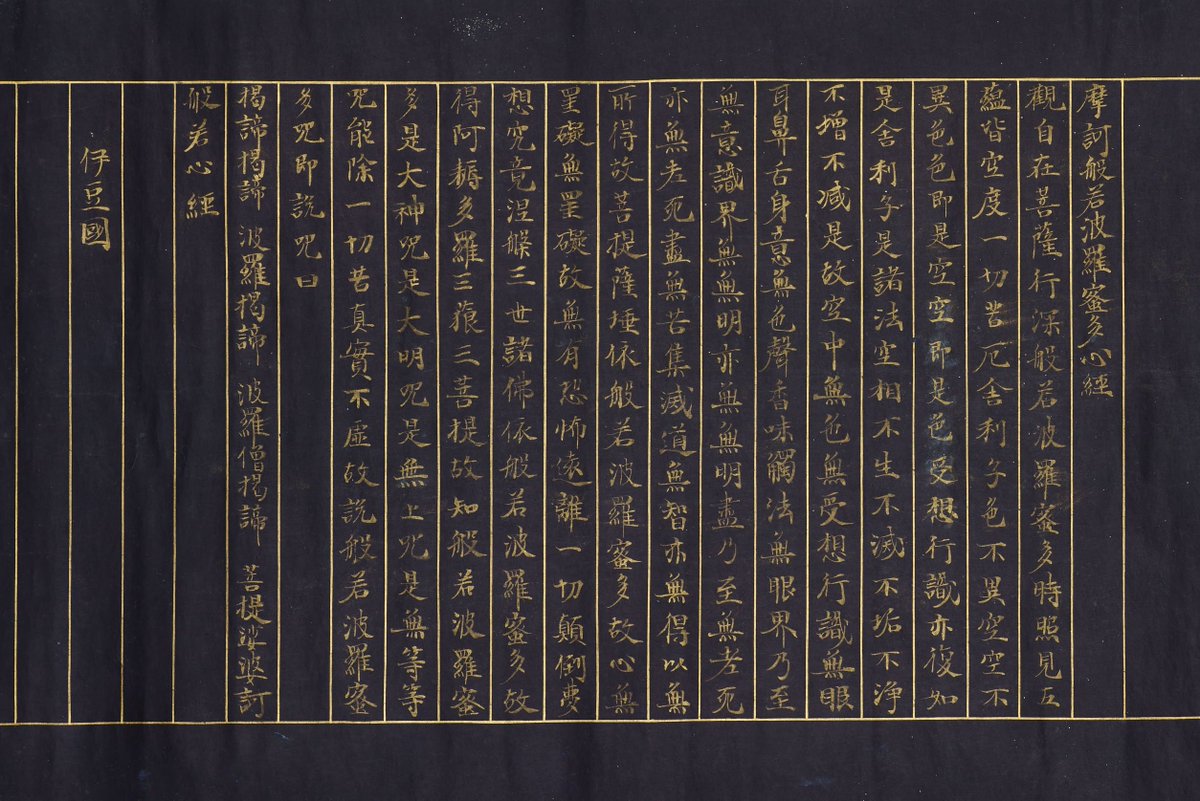 摩訶般若波羅蜜多心經
觀自在菩薩行深般若波羅蜜多時照見五
蘊皆空度一切苦厄舍利子色不異空空不
異色色即是空空即是色受想行識亦復如
是舍利子是諸法空相不生不滅不垢不浄
不增不減是故空中無色無受想行識無眼
耳鼻舌身意無色聲香味觸法無眼界乃至
無意識界無無明亦無無明盡乃至無老死
亦無老死盡無苦集滅道無智亦無得以無
所得故菩提薩埵依般若波羅蜜多故心無
罣礙無罣礙故無有恐怖遠離一切顛倒夢
想究竟涅槃三世諸佛依般若波羅蜜多故
得阿耨多羅三藐三菩提故知般若波羅蜜
多是大神咒是大明咒是無上咒是無等等
咒能除一切苦真實不虛故說般若波羅蜜
多咒即說咒曰
揭諦揭諦 波羅揭諦 波羅僧揭諦 菩提娑婆訶
般若心經
伊豆國